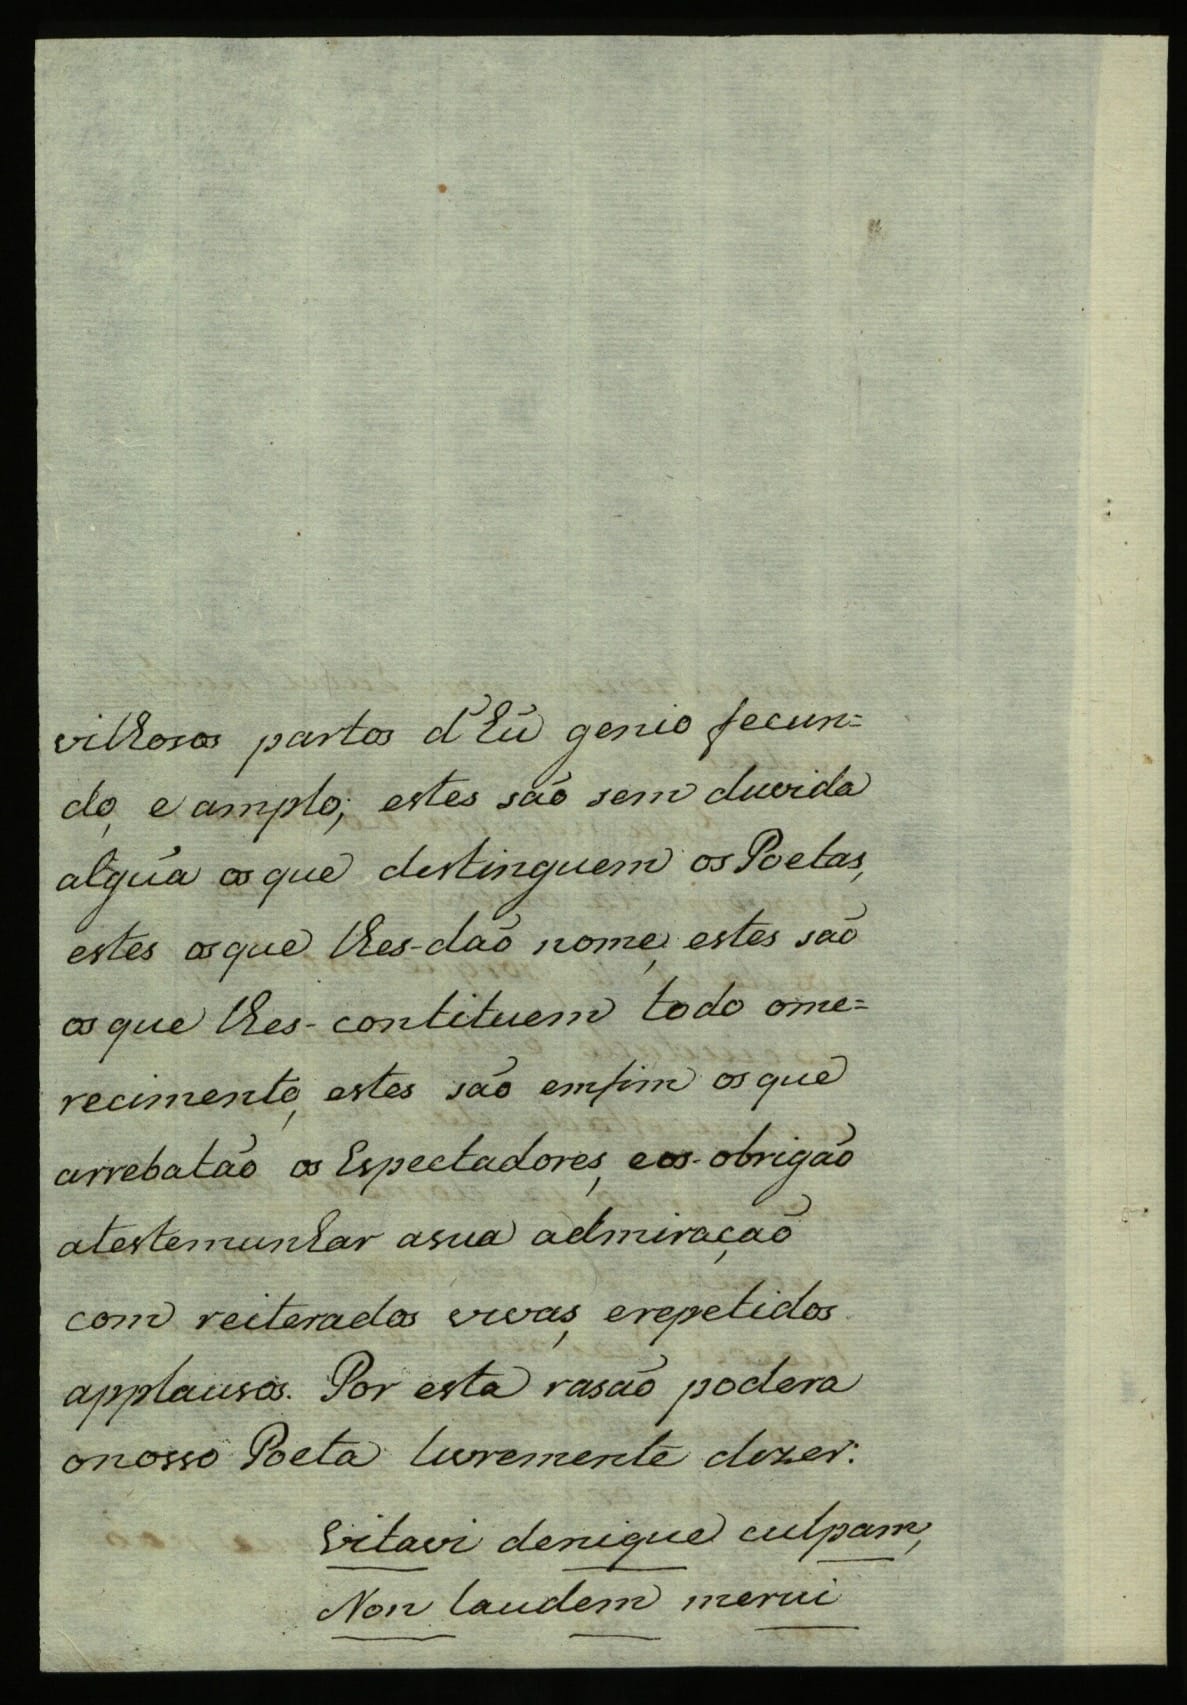 vilhosos partos d'hũ genio fecun=
do, e amplo; estes são sem duvida
algũa os que destinguem os Poetas,
estes os que lhes-dão nome, estes são
os que lhes-contituem todo o me=
recimento, estes são emfim os que
arrebatão os Espectadores, e os-obrigão
a testemunhar a sua admiração
com reiterados vivas, e repetidos
applausos. Por esta rasão podera
o nosso Poeta livremente dizer:
Vitavi denique culpam,
Non laudem merui